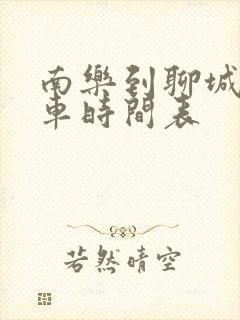 南樂到聊城
車時間表
若然晴空